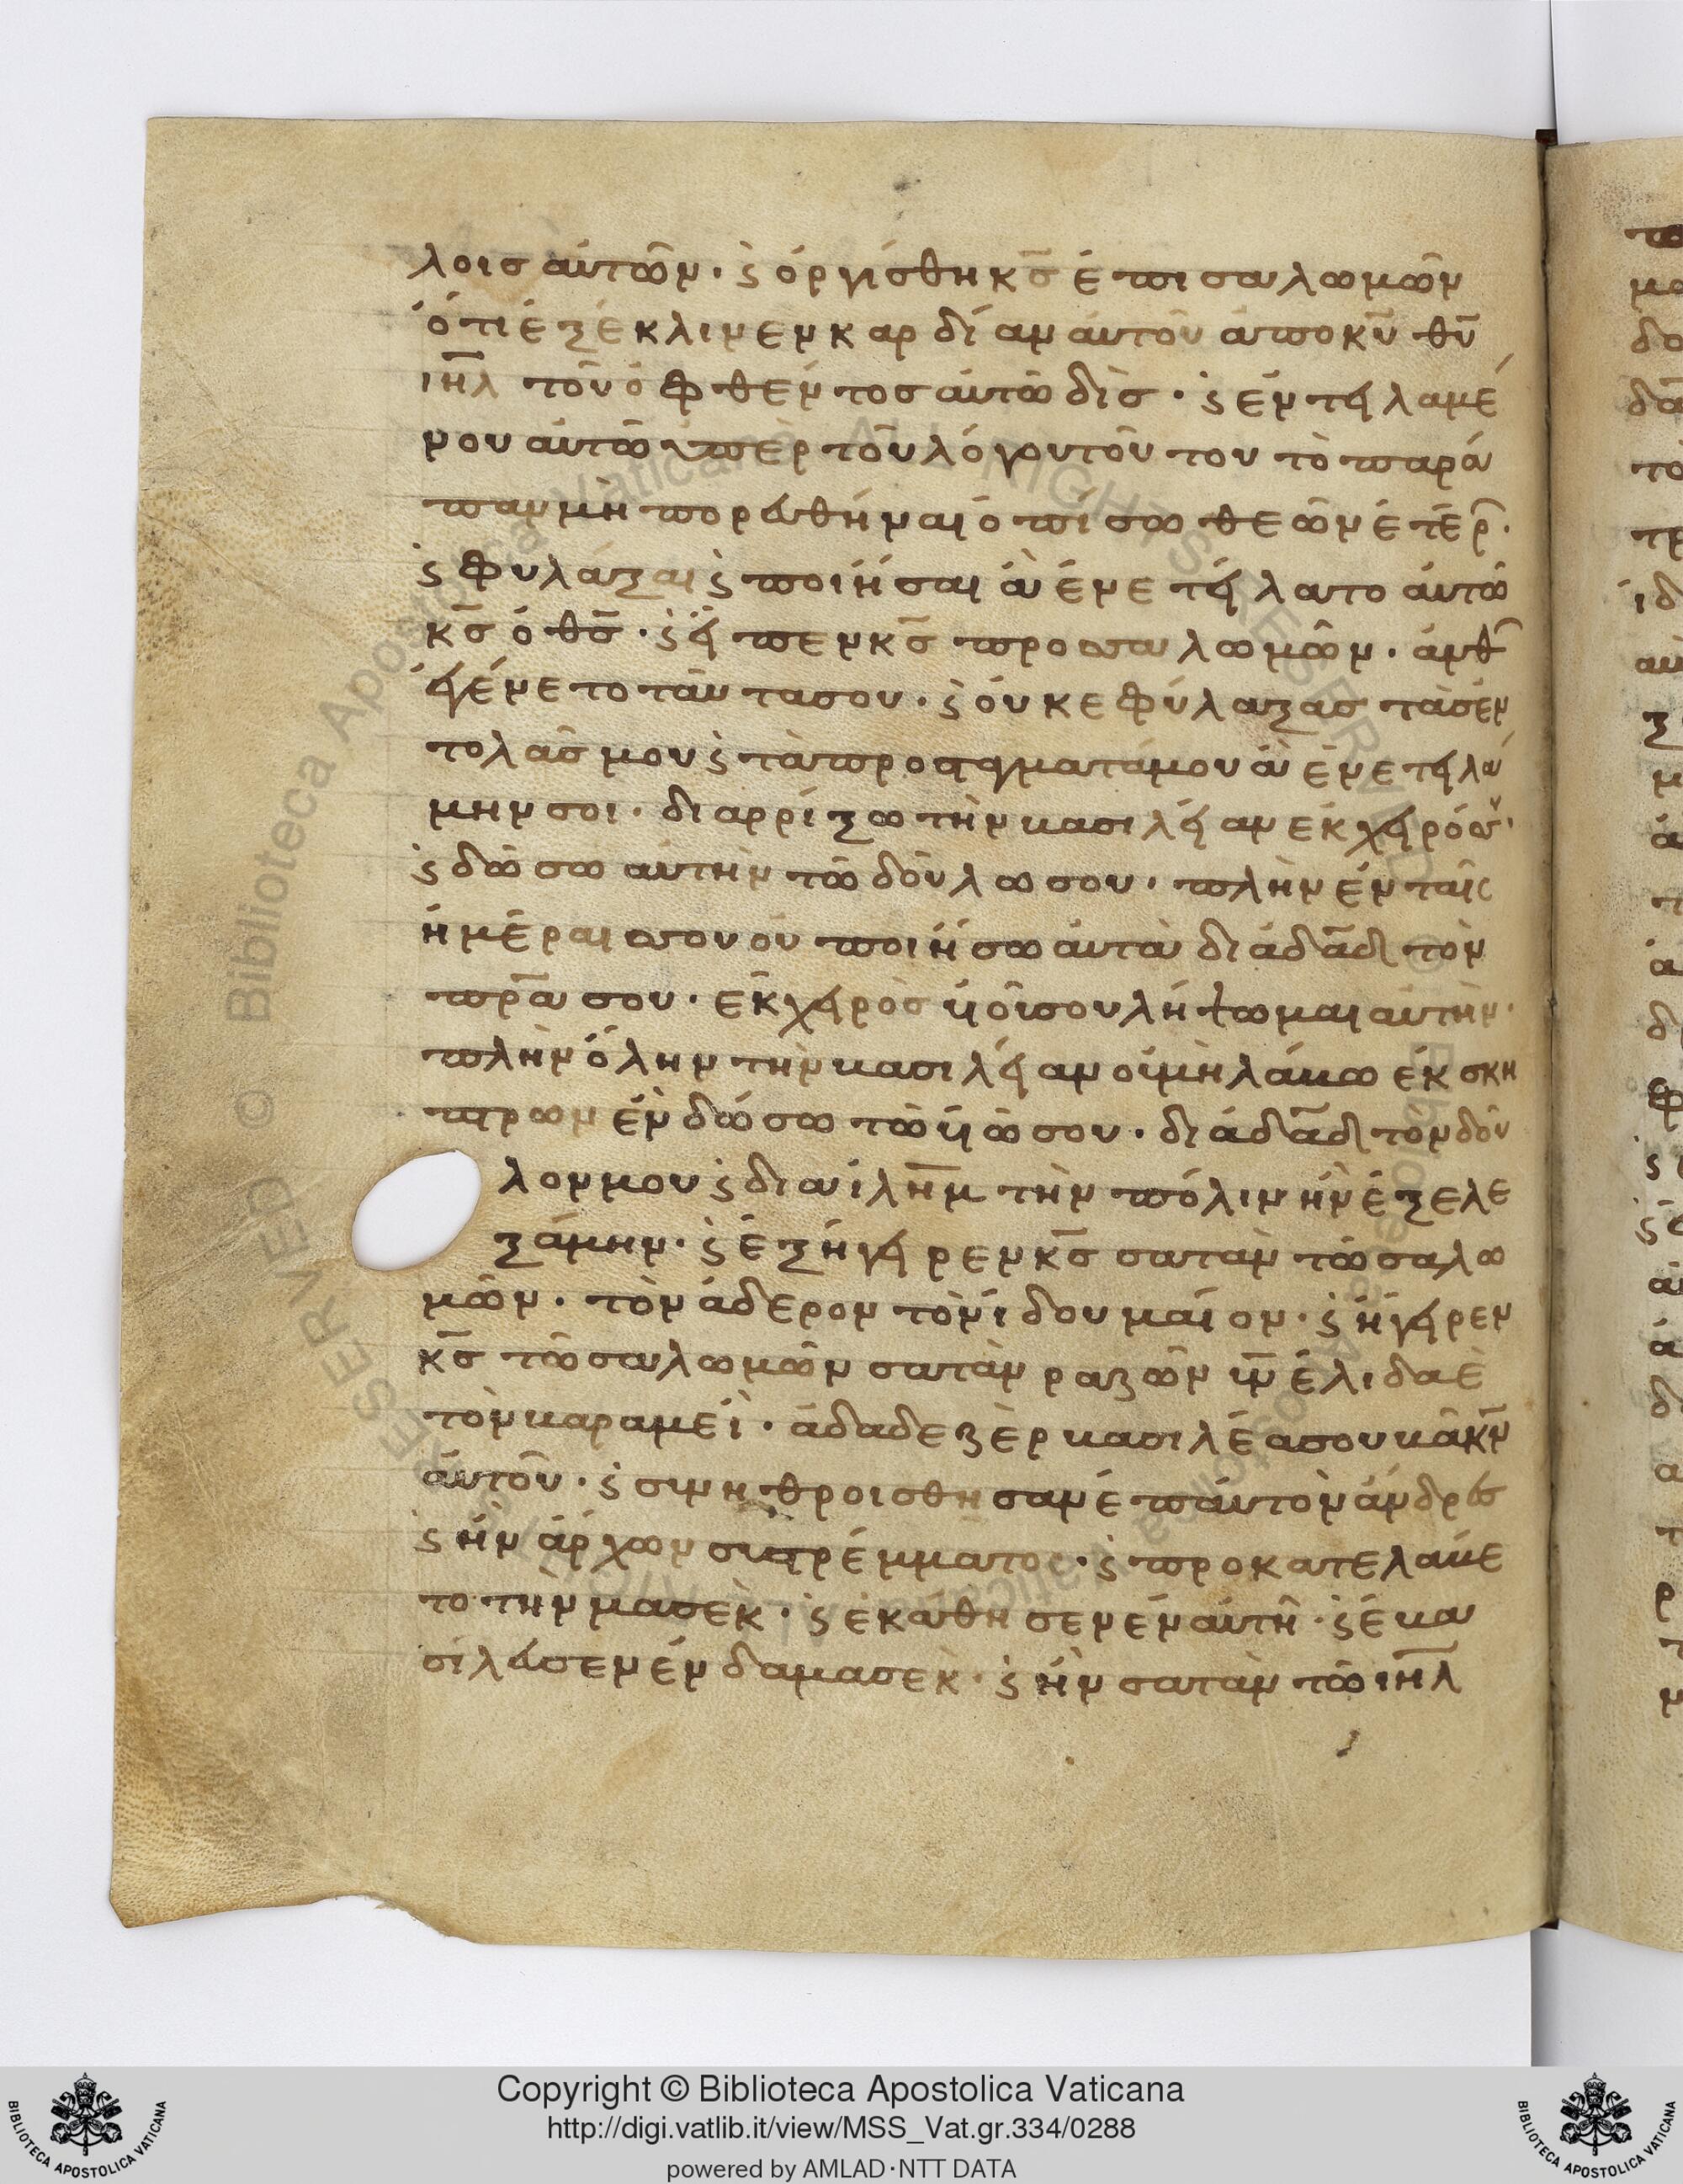 λοισ αὐτῶν· ϛ ὀργίσθη κ̅σ̅ ἐπι σαλωμῶν
ὅτι ἐξέκλινεν καρδίαν αὐτοῦ ἀπο κ̅υ̅ θ̅υ̅
ι̅η̅λ̅ τοῦ ὀφθέντοσ αὐτῶ δὶσ· ϛ ἐντειλαμέ
νου αὐτῶ ὑπὲρ τοῦ λόγου τούτου τὸ παρά
παν μὴ πορευθῆναι ὀπίσω θεῶν ἑτέρ·
ϛ φυλάξαι ϛ ποιῆσαι ἃ ἐνετείλατο αὐτῶ
κ̅σ̅ ὁ θ̅σ̅· ϛ εἶπεν κ̅σ̅ προσ σαλωμῶν· ἀνθ
εἰ ἐγένετο ταῦτα σου· ϛ οὐκ ἐφύλαξασ τὰσ ἐν
τολάσ μου ϛ τὰ προσταγματά μου ἃ ἐνετειλά
μην σοι· διαρρίξω τὴν βασιλείαν ἐκ χειρόσ
ϛ δώσω αὐτὴν τῶ δούλω σου· πλὴν ἐν ταῖσ
ἡμέραισ σου οὐ ποιήσω αὐτὰ διὰ δ̅α̅δ̅ τὸν
π̅ρ̅α̅ σου· ἐκ χειρὸσ υἱοῦ σου λήψωμαι αὐτὴν·
πλὴν ὅλην τὴν βασιλείαν οὐ μὴ λάβω ἐν σκη
πτρων ἓν δώσω τῶ υἱῶ σου· διὰ δ̅α̅δ̅ τὸν δοῦ
λον μου ϛ δια ἰ̅λ̅η̅μ̅ τὴν πόλιν ἣν ἐξελε
ξάμην· ϛ ἐξήγειρεν κ̅σ̅ σατὰν τῶ σαλω
μῶν· τὸν ἄδερον τὸν ἰδουμαίον· ϛ ἤγειρεν
κ̅σ̅ τῶ σαλωμῶν σατὰν ραζῶν υ̅ν̅ ἐλιδαὲ
τὸν βαραμεὶ· ἀδαδεζὲρ βασιλέα σουβὰ κ̅ν̅
αὐτοῦ· ϛ σινηθροισθησαν ἐπ αὐτὸν ἄνδρεσ
ϛ ἦν ἄρχων συστρέμματοσ· ϛ προκατελάβε
το τὴν μασεκ· ϛ ἐκάθησεν ἐν αὐτῆ· ϛ ἐβα
σίλευσεν ἐν δαμασεκ· ϛ ἦν σατὰν τῶ ι̅η̅λ̅
Copyright © Biblioteca Apostolica Vaticana
http://digi.vatlib.it/view/MSS_Vat.gr.334/0288
powered by AMLAD·NTT DATA